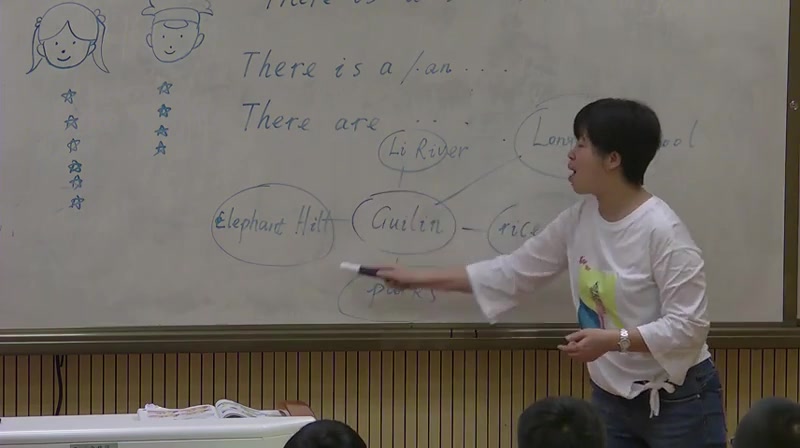 There is a
There is a / an ...
There are ...
Li River
Elephant Hill
Guilin
rice
parks